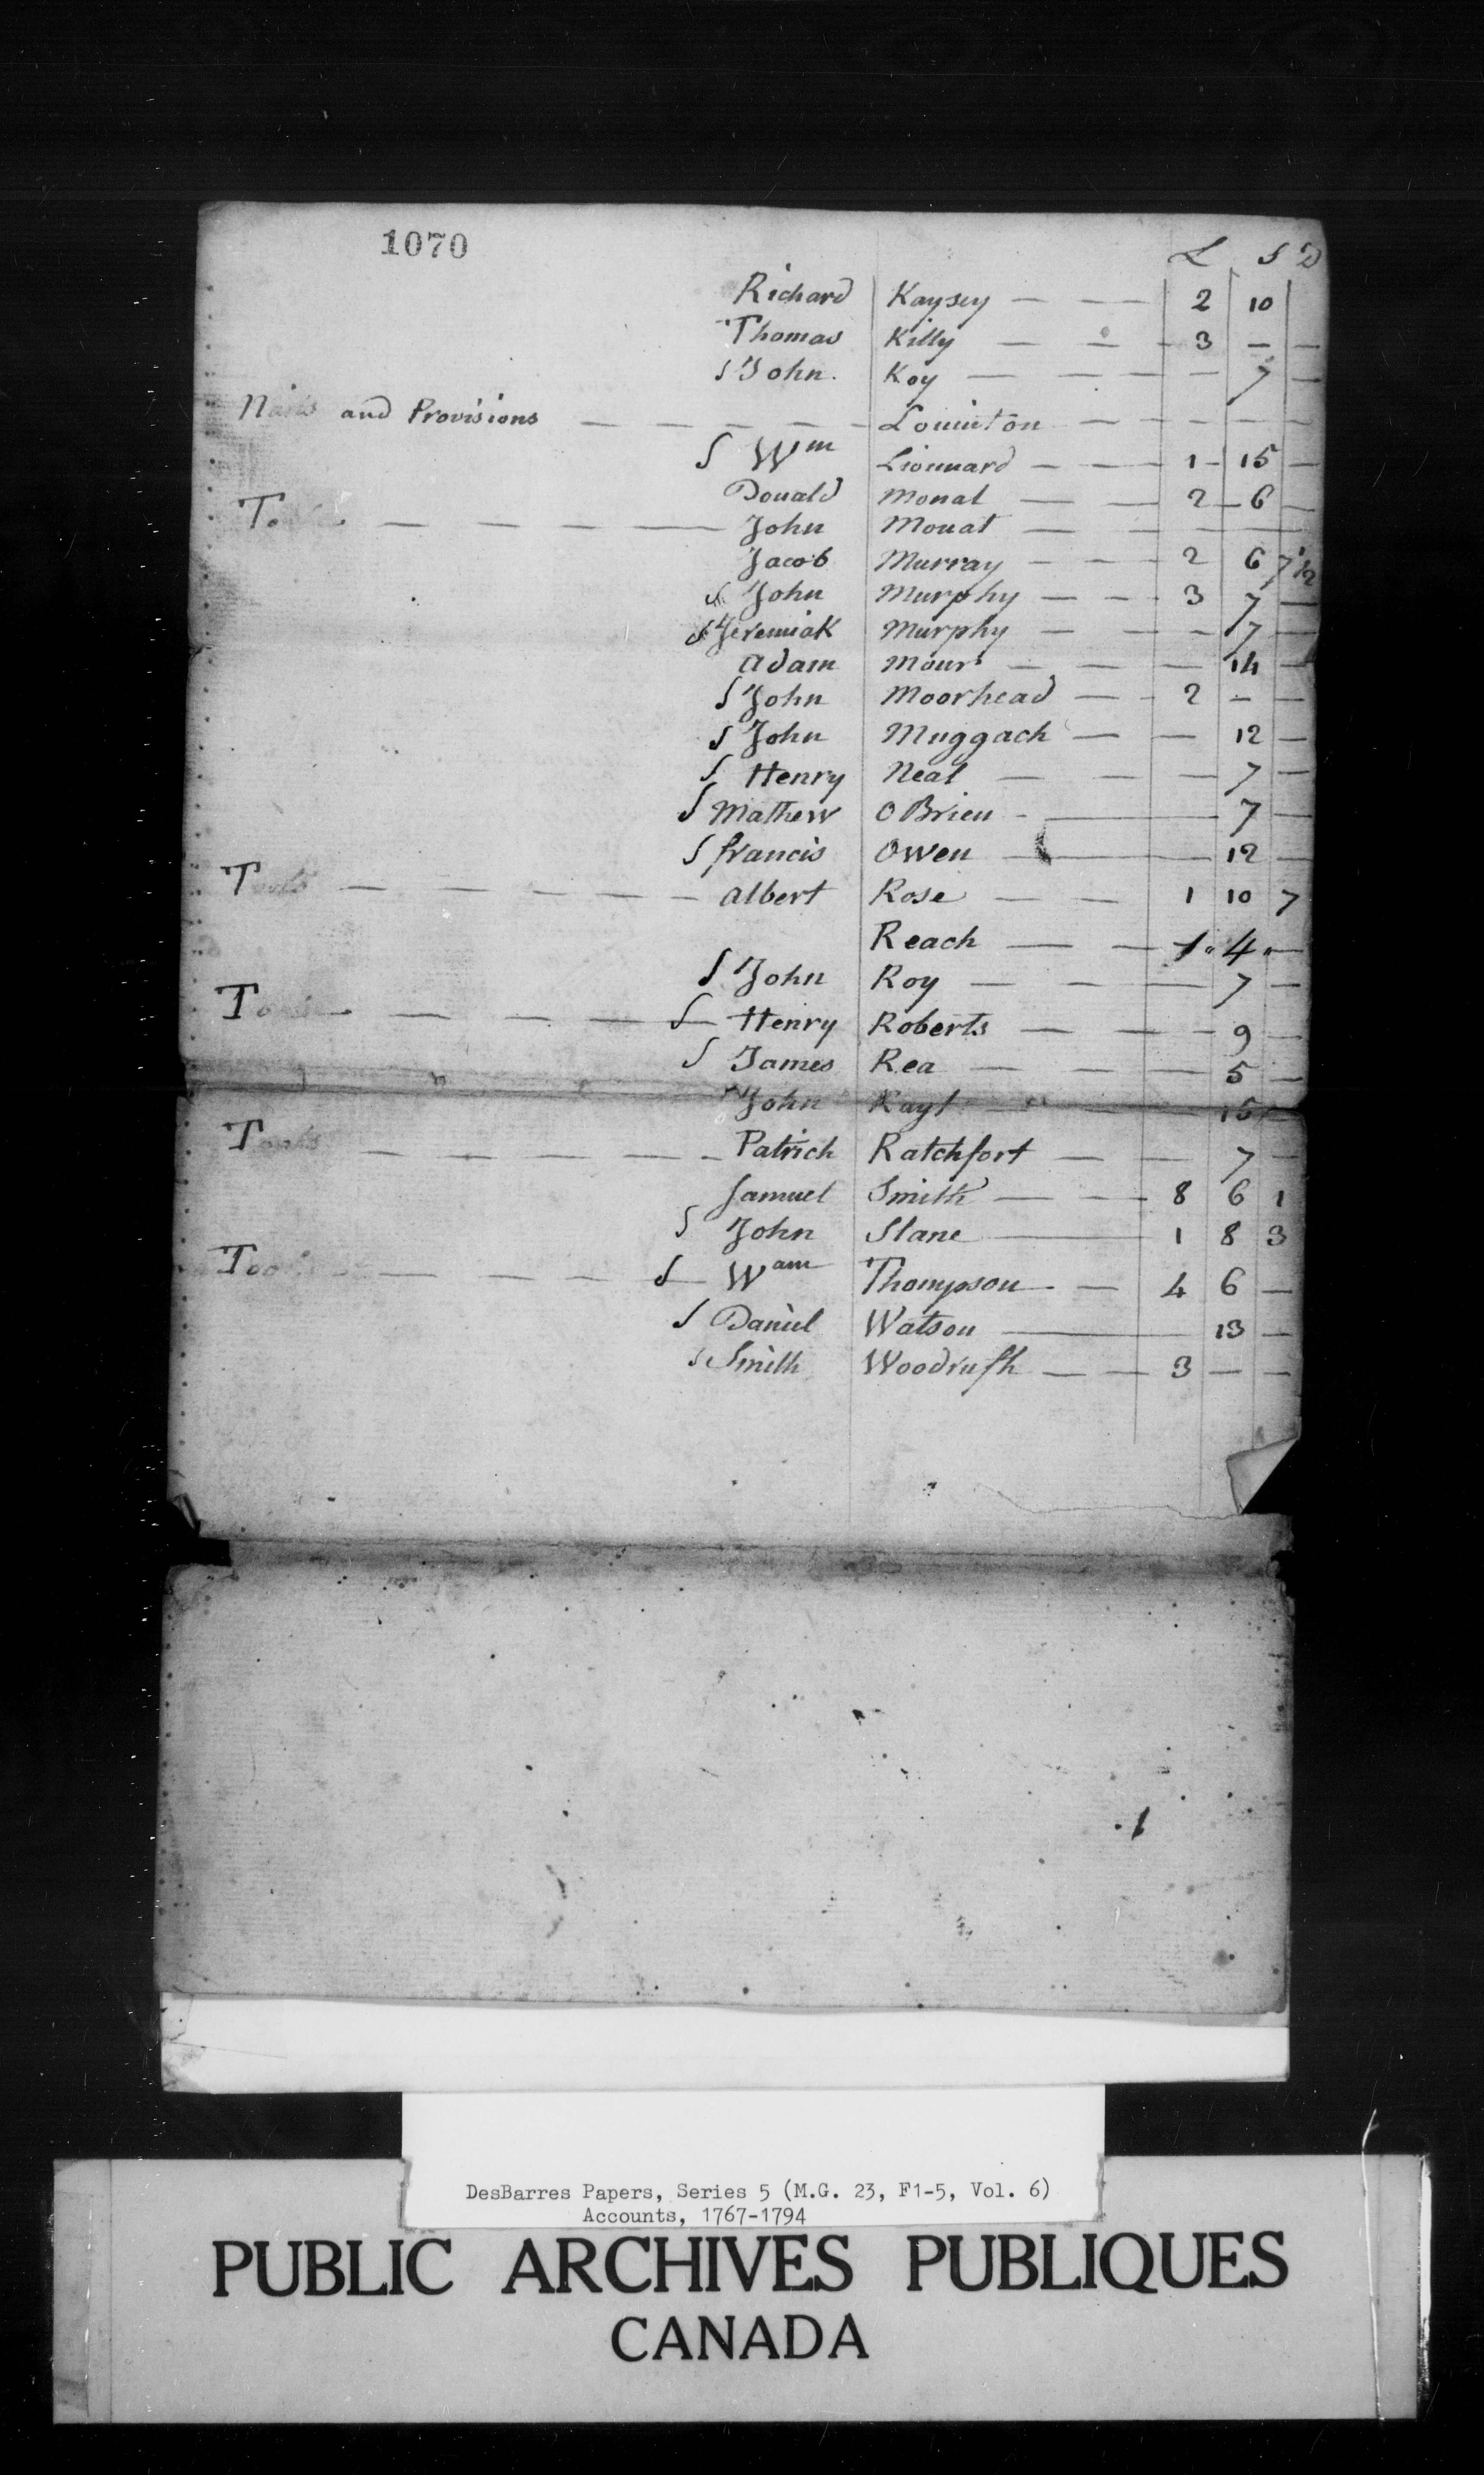 1070
L S D
Richard Kaysey — — — 2 10
Thomas Killy — — — 3 — —
S John. Koy — — — — 7 —
Nails and Provisions — — — — — Lounton — — — — —
S Wm Lionnard — — — 1 — 15 —
Donald Monat — — 2 — 6 —
Tools — — — — — John Mouat — — — — —
Jacob Murray — — — 2 6 7 1/2
S John Murphy — — — 3 7 —
S Jeremiah Murphy — — — 7 —
Adam Mour — — — 14 —
S John Moorhead — — 2 — —
S John Muggach — — 12 —
S Henry Neal — — — 7 —
S Mathew O Brien - — 7 —
S francis Owen — — 12 —
Tools — — — — — Albert Rose — — 1 10 7
Reach — — 1 . 4 . —
S John Roy — — — 7 —
Tools — — — — S — Henry Roberts — — — 9 —
S James Rea — — — 5 —
John Rayl — — 15 —
Tools — — — — — — Patrich Ratchfort — — 7 —
Samuel Smith — — — 8 6 1
S John Slane — 1 8 3
Tools — — — — S — Wam Thompson — — 4 6 —
S Daniel Watson — 13 —
S Smith Woodrufh — — 3 — —
DesBarres Papers, Series 5 (M.G. 23, F1-5, Vol. 6)
Accounts, 1767-1794
PUBLIC ARCHIVES PUBLIQUES
CANADA